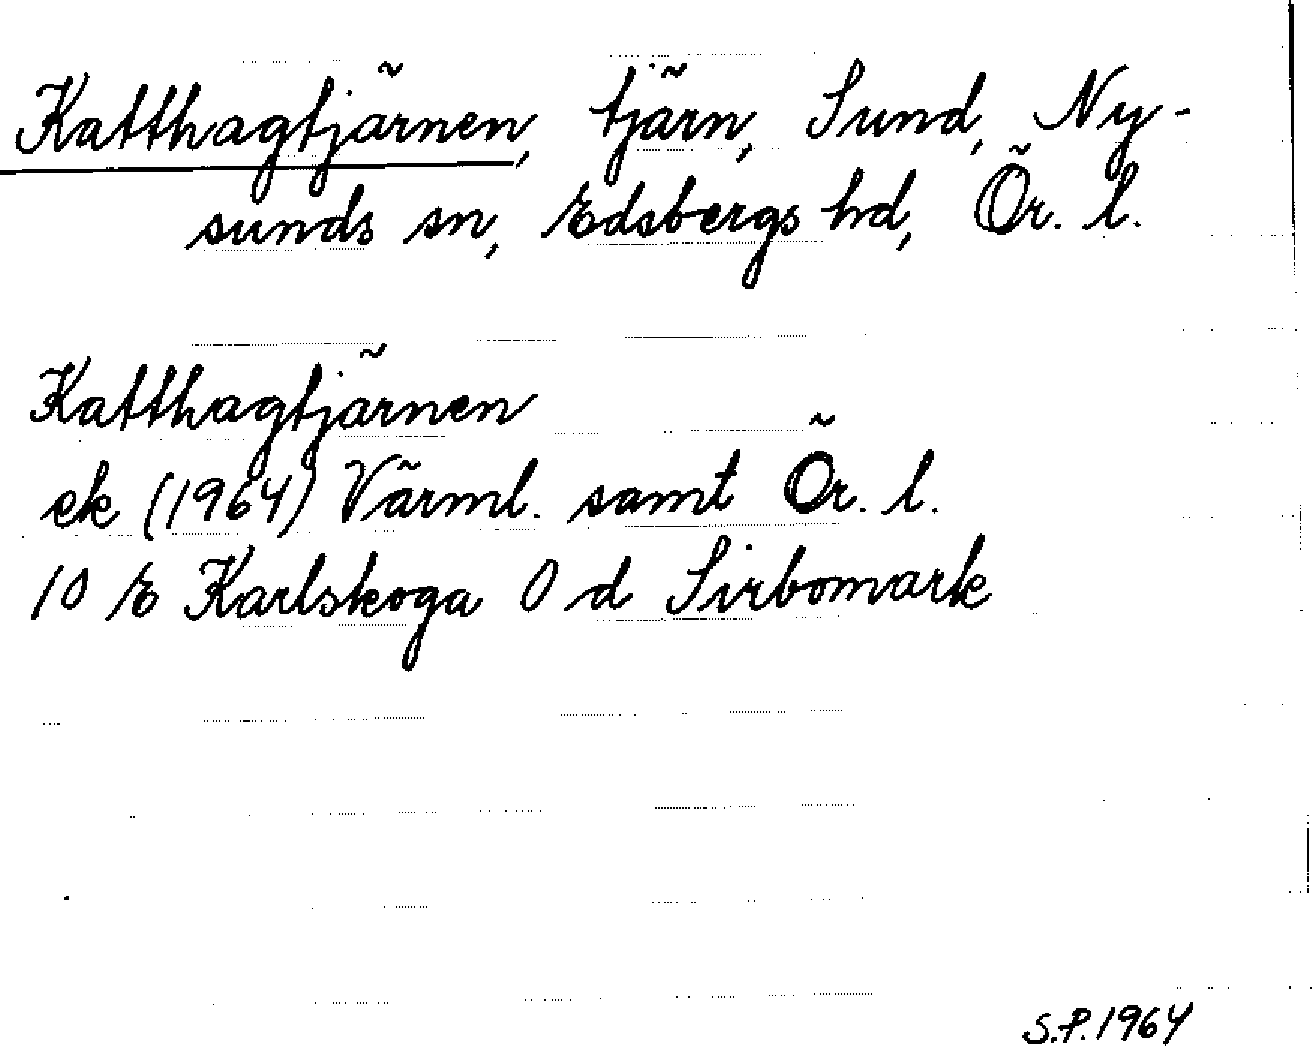 Katthagtjärnen, tjärn, Sund, Ny-
sunds sn, Edsbergs hd, Ör. l.
Katthagtjärnen
ek (1964) Värml. samt Ör. l.
10 E Karlskoga 0 d Sirbomark
S.P. 1964